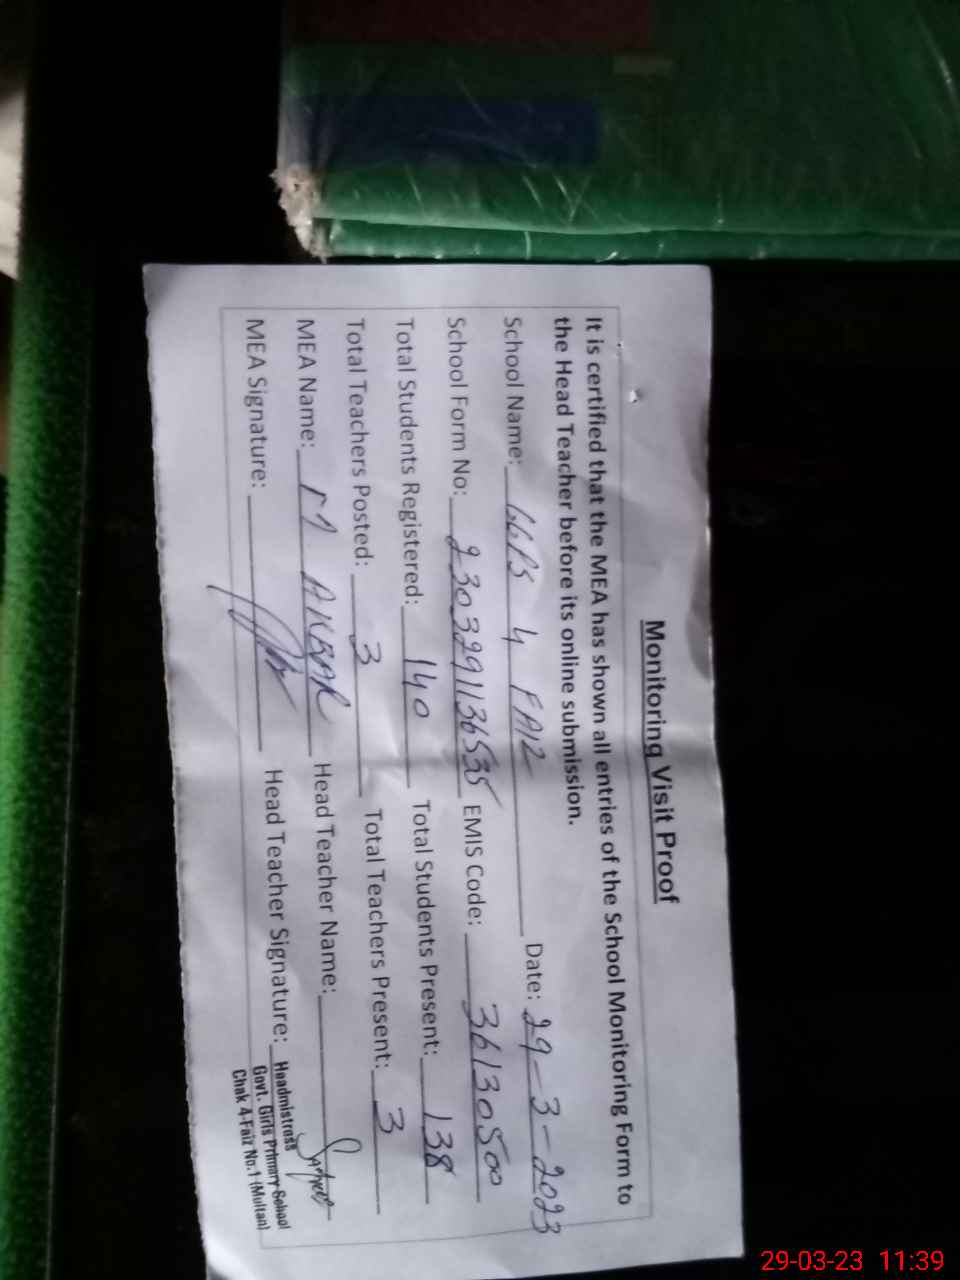 Monitoring Visit Proof
It is certified that the MEA has shown all entries of the School Monitoring Form to
the Head Teacher before its online submission.
School Name: GGPS 4 FAIZ Date: 29-3-2023
School Form No: 2303291136535 EMIS Code: 36130500
Total Students Registered: 140 Total Students Present: 138
Total Teachers Posted: 3 Total Teachers Present: 3
MEA Name: M AKBAR Head Teacher Name:
MEA Signature: Head Teacher Signature:
Headmistress
Govt. Girls Primary School
Chak 4-Faiz No.1 (Multan)
29-03-23 11:39